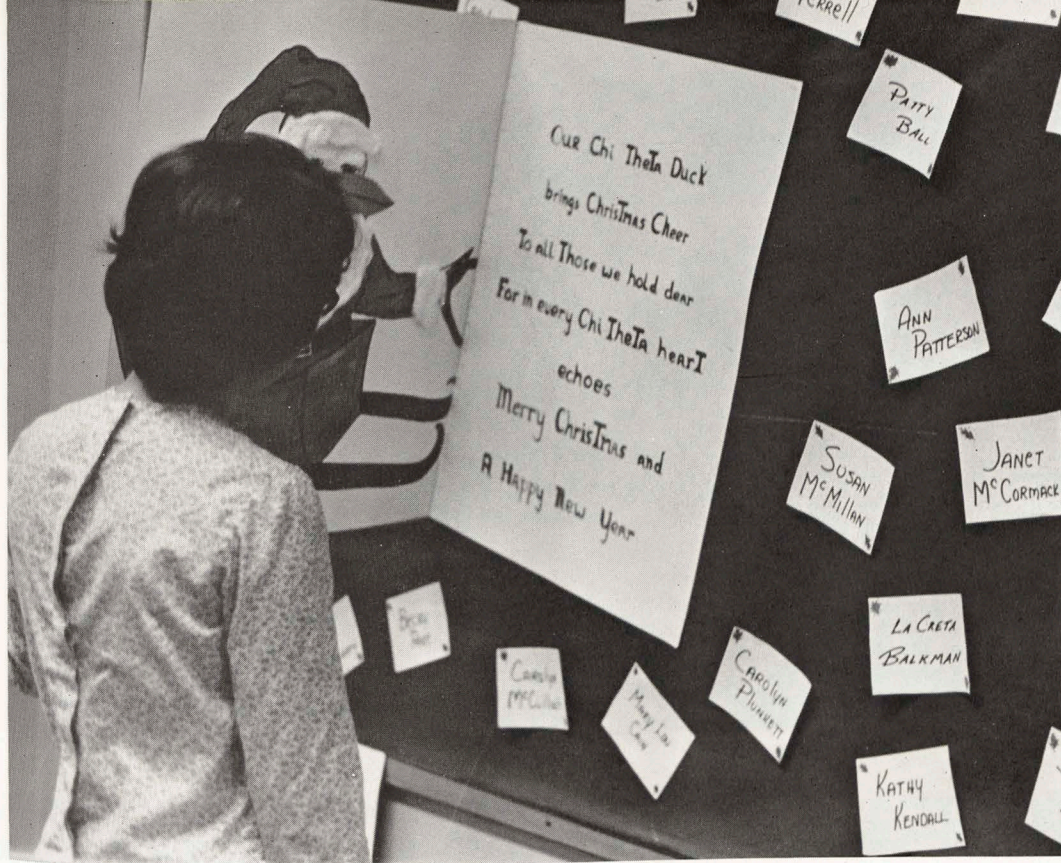 Our Chi Theta Duck
brings Christmas Cheer
To all Those we hold dear
For in every Chi Theta heart
echoes
Merry Christmas and
A Happy New Year
Patty
Ball
Ann
Patterson
Susan
McMillan
Janet
McCormack
La Creta
Balkman
Carolyn
Plunkett
Mary Lou
Carolyn
Kathy
Kendall